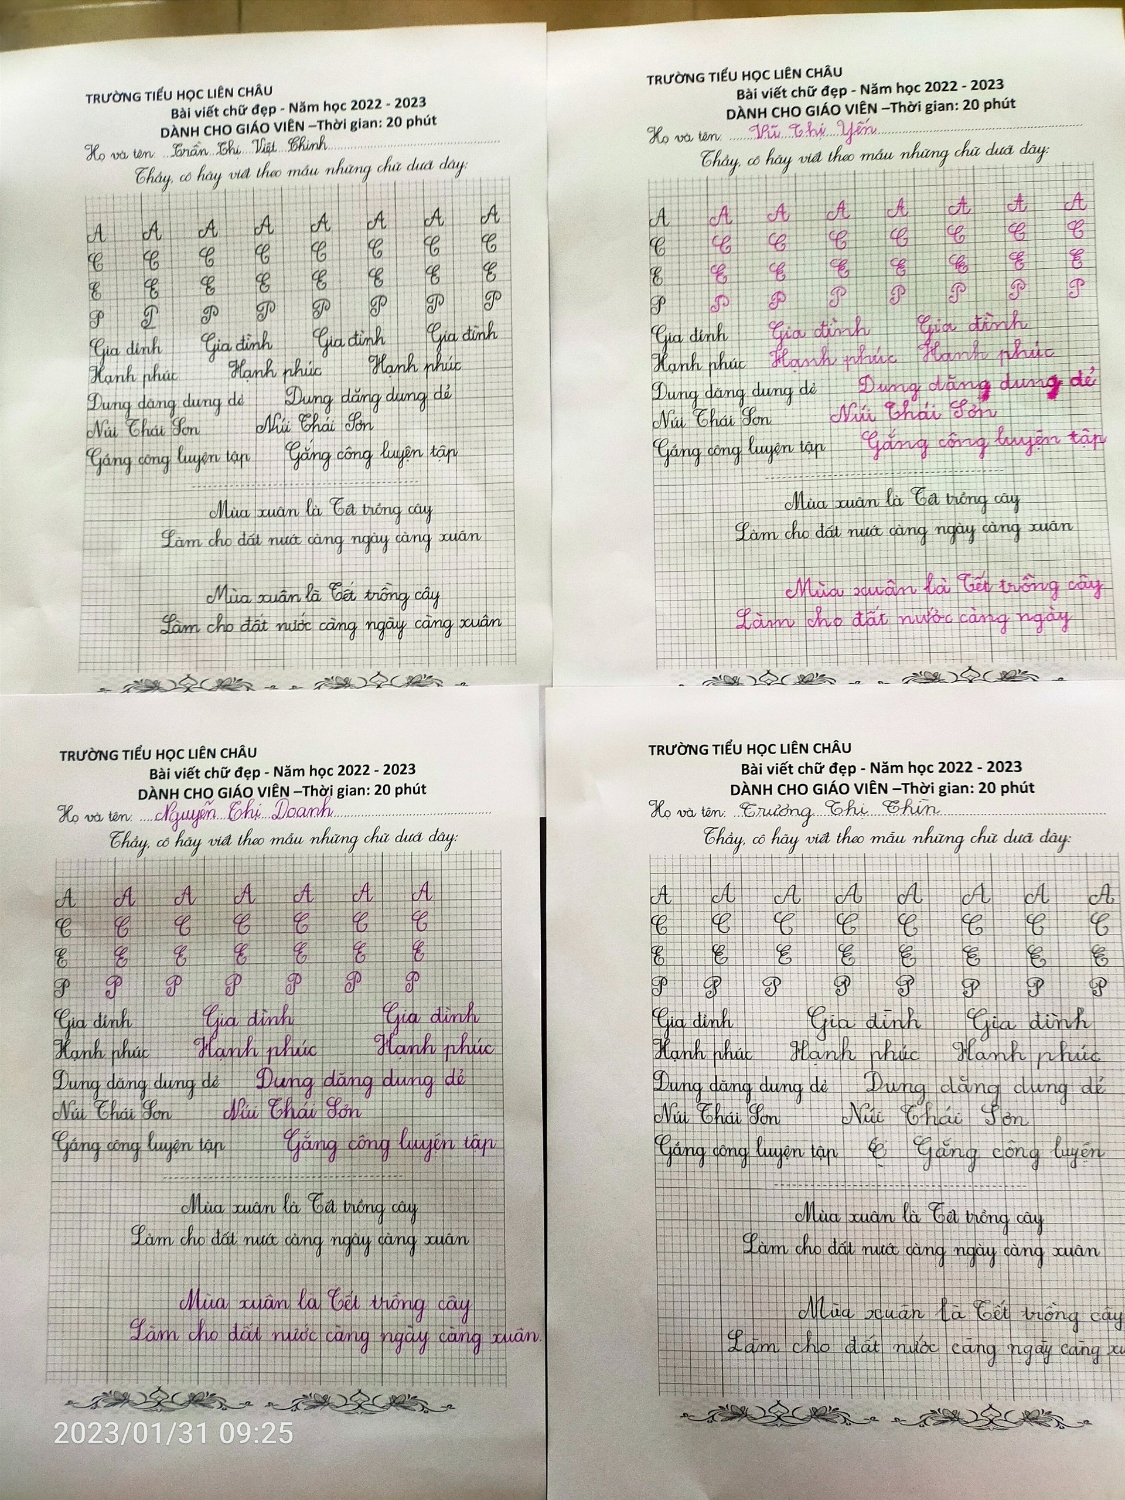 TRƯỜNG TIỂU HỌC LIÊN CHÂU
Bài viết chữ đẹp - Năm học 2022 - 2023
DÀNH CHO GIÁO VIÊN –Thời gian: 20 phút
Họ và tên: Trần Thị Việt Chinh
Thầy, cô hãy viết theo mẫu những chữ dưới đây:
A A A A A A A A
C C C C C C C C
E E E E E E E E
P P P P P P P P
Gia đình Gia đình Gia đình Gia đình
Hạnh phúc Hạnh phúc Hạnh phúc
Dung dăng dung dẻ Dung dăng dung dẻ
Núi Thái Sơn Núi Thái Sơn
Gắng công luyện tập Gắng công luyện tập
Mùa xuân là Tết trồng cây
Làm cho đất nước càng ngày càng xuân
Mùa xuân là Tết trồng cây
Làm cho đất nước càng ngày càng xuân
TRƯỜNG TIỂU HỌC LIÊN CHÂU
Bài viết chữ đẹp - Năm học 2022 - 2023
DÀNH CHO GIÁO VIÊN –Thời gian: 20 phút
Họ và tên: Vũ Thị Yến
Thầy, cô hãy viết theo mẫu những chữ dưới đây:
A A A A A A A A
C C C C C C C C
E E E E E E E E
P P P P P P P P
Gia đình Gia đình Gia đình
Hạnh phúc Hạnh phúc Hạnh phúc
Dung dăng dung dẻ Dung dăng dung dẻ
Núi Thái Sơn Núi Thái Sơn
Gắng công luyện tập Gắng công luyện tập
Mùa xuân là Tết trồng cây
Làm cho đất nước càng ngày càng xuân
Mùa xuân là Tết trồng cây
Làm cho đất nước càng ngày
TRƯỜNG TIỂU HỌC LIÊN CHÂU
Bài viết chữ đẹp - Năm học 2022 - 2023
DÀNH CHO GIÁO VIÊN –Thời gian: 20 phút
Họ và tên: Nguyễn Thị Doanh
Thầy, cô hãy viết theo mẫu những chữ dưới đây:
A A A A A A A
C C C C C C C
E E E E E E E
P P P P P P P
Gia đình Gia đình Gia đình
Hạnh phúc Hạnh phúc Hạnh phúc
Dung dăng dung dẻ Dung dăng dung dẻ
Núi Thái Sơn Núi Thái Sơn
Gắng công luyện tập Gắng công luyện tập
Mùa xuân là Tết trồng cây
Làm cho đất nước càng ngày càng xuân
Mùa xuân là Tết trồng cây
Làm cho đất nước càng ngày càng xuân.
2023/01/31 09:25
TRƯỜNG TIỂU HỌC LIÊN CHÂU
Bài viết chữ đẹp - Năm học 2022 - 2023
DÀNH CHO GIÁO VIÊN –Thời gian: 20 phút
Họ và tên: Trương Thị Thìn
Thầy, cô hãy viết theo mẫu những chữ dưới đây:
A A A A A A A A
C C C C C C C C
E E E E E E E E
P P P P P P P P
Gia đình Gia đình Gia đình
Hạnh phúc Hạnh phúc Hạnh phúc
Dung dăng dung dẻ Dung dăng dung dẻ
Núi Thái Sơn Núi Thái Sơn
Gắng công luyện tập Gắng công luyện
Mùa xuân là Tết trồng cây
Làm cho đất nước càng ngày càng xuân
Mùa xuân là Tết trồng cây
Làm cho đất nước càng ngày càng